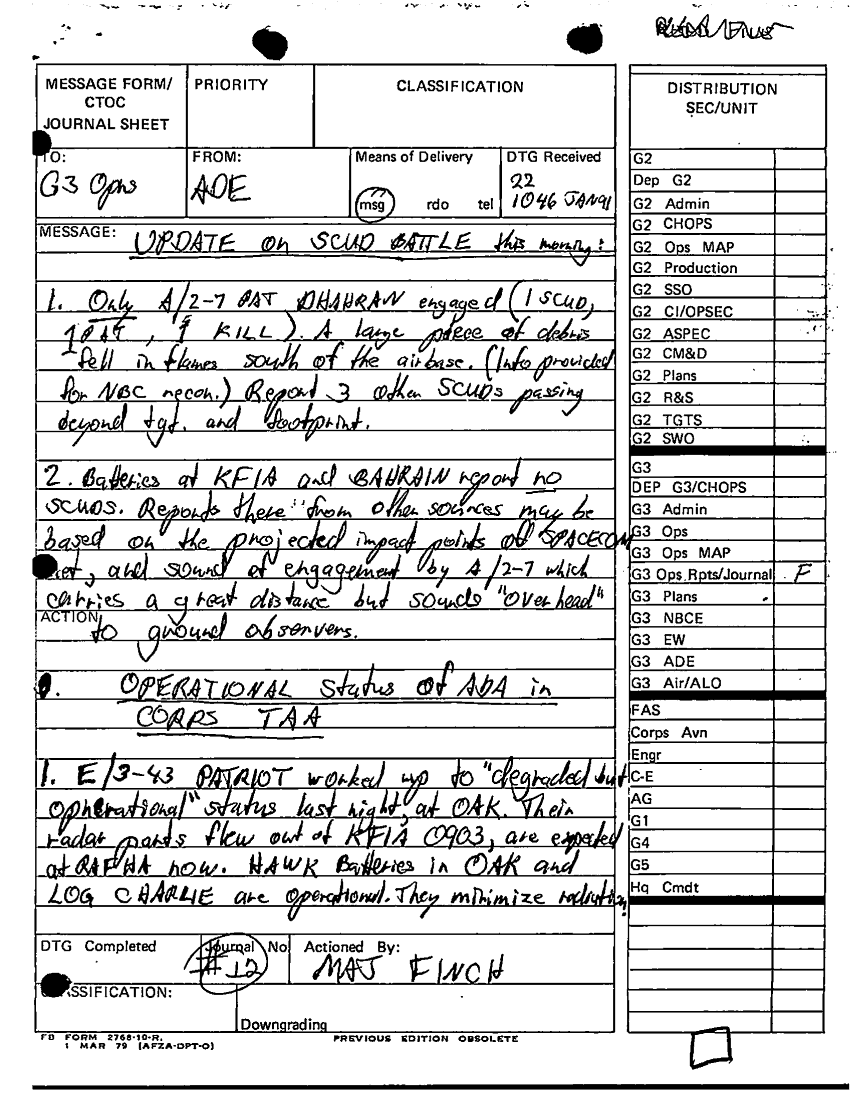 MESSAGE FORM/
CTOC
JOURNAL SHEET
PRIORITY
CLASSIFICATION
TO:
G3 Opns
FROM:
ADE
Means of Delivery
msg rdo tel
DTG Received
22
1046 JAN91
MESSAGE:
UPDATE on SCUD BATTLE this morning:
1. Only A/2-7 PAT DHAHRAN engaged (1 SCUD,
1 PAT, 1 KILL). A large piece of debris
fell in flames south of the airbase. (Info provided
for NBC recon.) Report 3 other SCUDs passing
beyond tgt. and footprint.
2. Batteries at KFIA and BAHRAIN report no
SCUDS. Reports there from other sources may be
based on the projected impact points of SPACECOM
net, and sound of engagement by A/2-7 which
carries a great distance but sounds "overhead"
ACTION
to ground observers.
OPERATIONAL Status of ADA in
CORPS TAA
1. E/3-43 PATRIOT worked up to "degraded but
opherational" status last night, at OAK. Their
radar parts flew out of KFIA 0903, are expected
at RAFHA now. HAWK Batteries in OAK and
LOG CHARLIE are operational. They minimize radiation.
DTG Completed
Journal No
#12
Actioned By:
MAJ FINCH
CLASSIFICATION:
Downgrading
FB FORM 2768-10-R.
1 MAR 79 (AFZA-DPT-O)
PREVIOUS EDITION OBSOLETE
DISTRIBUTION
SEC/UNIT
G2
Dep G2
G2 Admin
G2 CHOPS
G2 Ops MAP
G2 Production
G2 SSO
G2 CI/OPSEC
G2 ASPEC
G2 CM&D
G2 Plans
G2 R&S
G2 TGTS
G2 SWO
G3
DEP G3/CHOPS
G3 Admin
G3 Ops
G3 Ops MAP
G3 Ops Rpts/Journal F
G3 Plans
G3 NBCE
G3 EW
G3 ADE
G3 Air/ALO
FAS
Corps Avn
Engr
C-E
AG
G1
G4
G5
Hq Cmdt